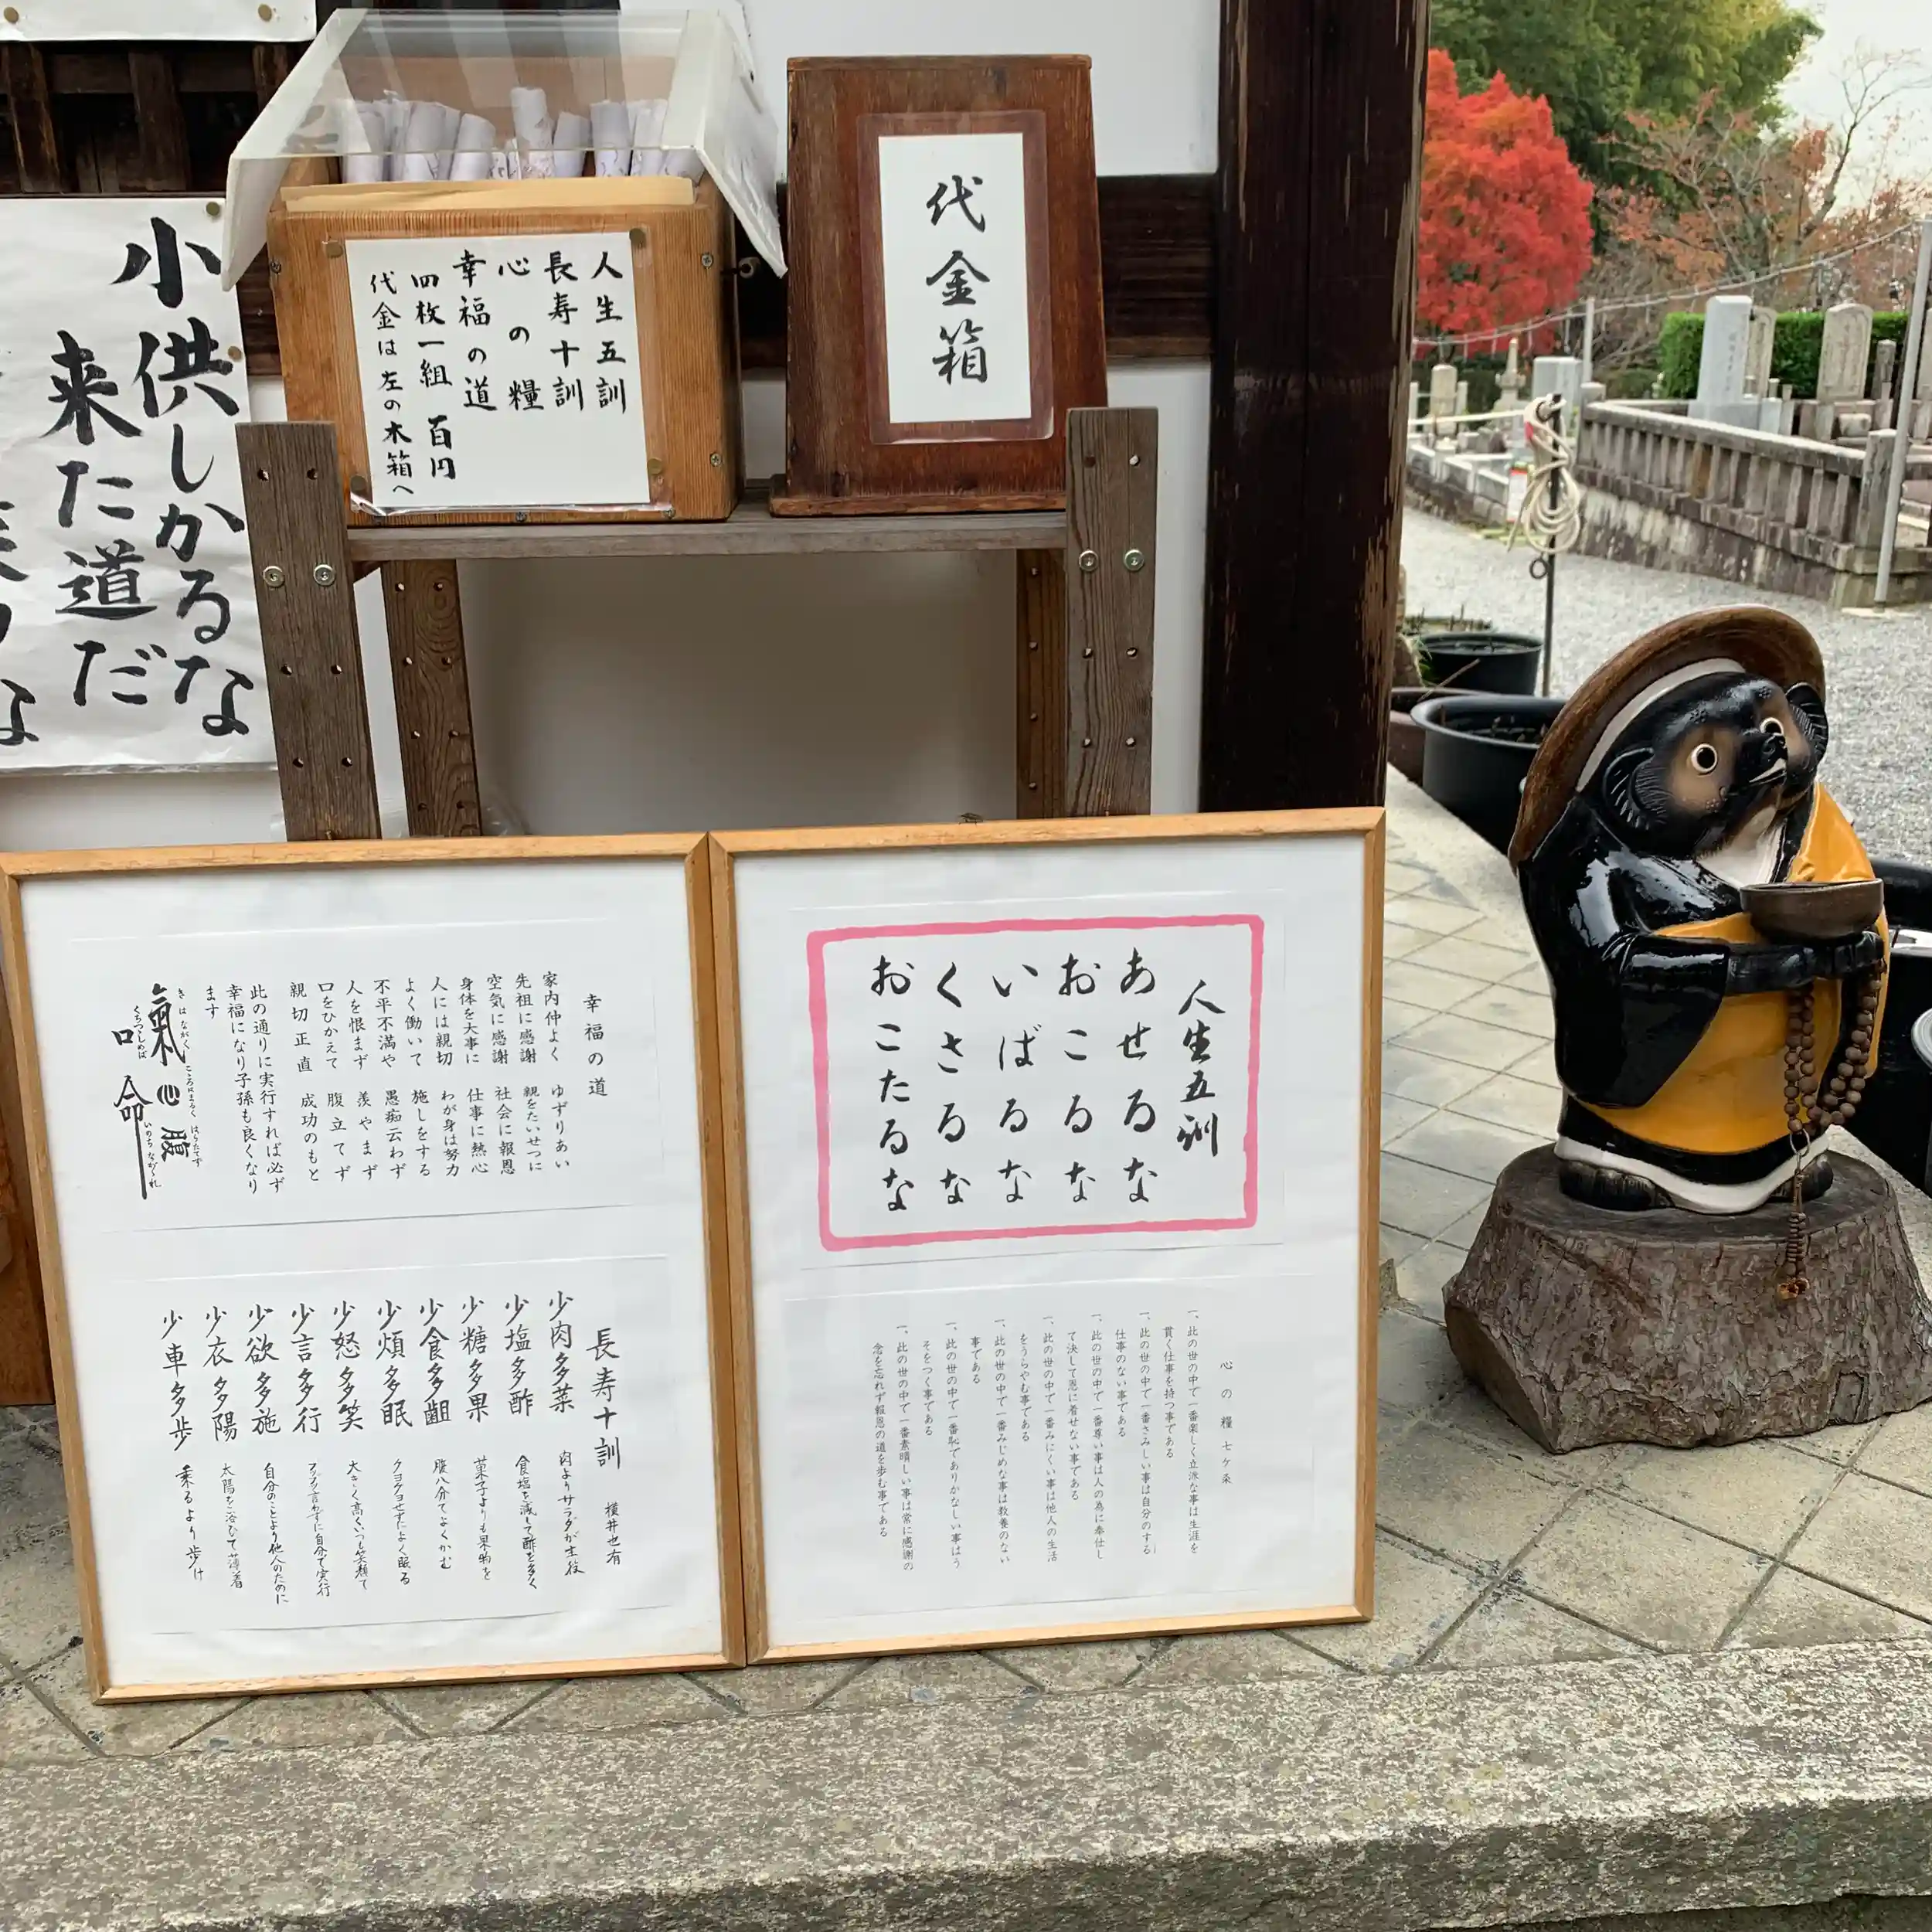 小供しかるな
来た道だ
人生五訓
長寿十訓
心の糧
幸福の道
四枚一組 百円
代金は左の木箱へ
代金箱
幸福の道
家内仲よく ゆずりあい
先祖に感謝 親をたいせつに
空気に感謝 社会に報恩
身体を大事に 仕事に熱心
人には親切 わが身は努力
よく働いて 施しをする
不平不満や 愚痴云わず
人を恨まず 羨やまず
口をひかえて 腹立てず
親切正直 成功のもと
此の通りに実行すれば必ず
幸福になり子孫も良くなり
ます
氣 心 腹
きはながく こころはまるく はらたてず
口 命
くちつつしめば いのちながかれ
人生五訓
あせるな
おこるな
いばるな
くさるな
おこたるな
長寿十訓 横井也有
少肉多菜 肉よりサラダが主役
少塩多酢 食塩を減して酢を多く
少糖多果 菓子よりも果物を
少食多齟 腹八分でよくかむ
少煩多眠 クヨクヨせずによく眠る
少怒多笑 大きく高くいつも笑顔で
少言多行 ブツブツ言わずに自分で実行
少欲多施 自分のことより他人のために
少衣多陽 太陽を浴びて薄着
少車多歩 乗るより歩け
心の糧七ケ条
一、此の世の中で一番楽しく立派な事は生涯を
貫く仕事を持つ事である
一、此の世の中で一番さみしい事は自分のする
仕事のない事である
一、此の世の中で一番尊い事は人の為に奉仕し
て決して恩に着せない事である
一、此の世の中で一番みにくい事は他人の生活
をうらやむ事である
一、此の世の中で一番みじめな事は教養のない
事である
一、此の世の中で一番恥でありかなしい事はう
そをつく事である
一、此の世の中で一番素晴しい事は常に感謝の
念を忘れず報恩の道を歩む事である